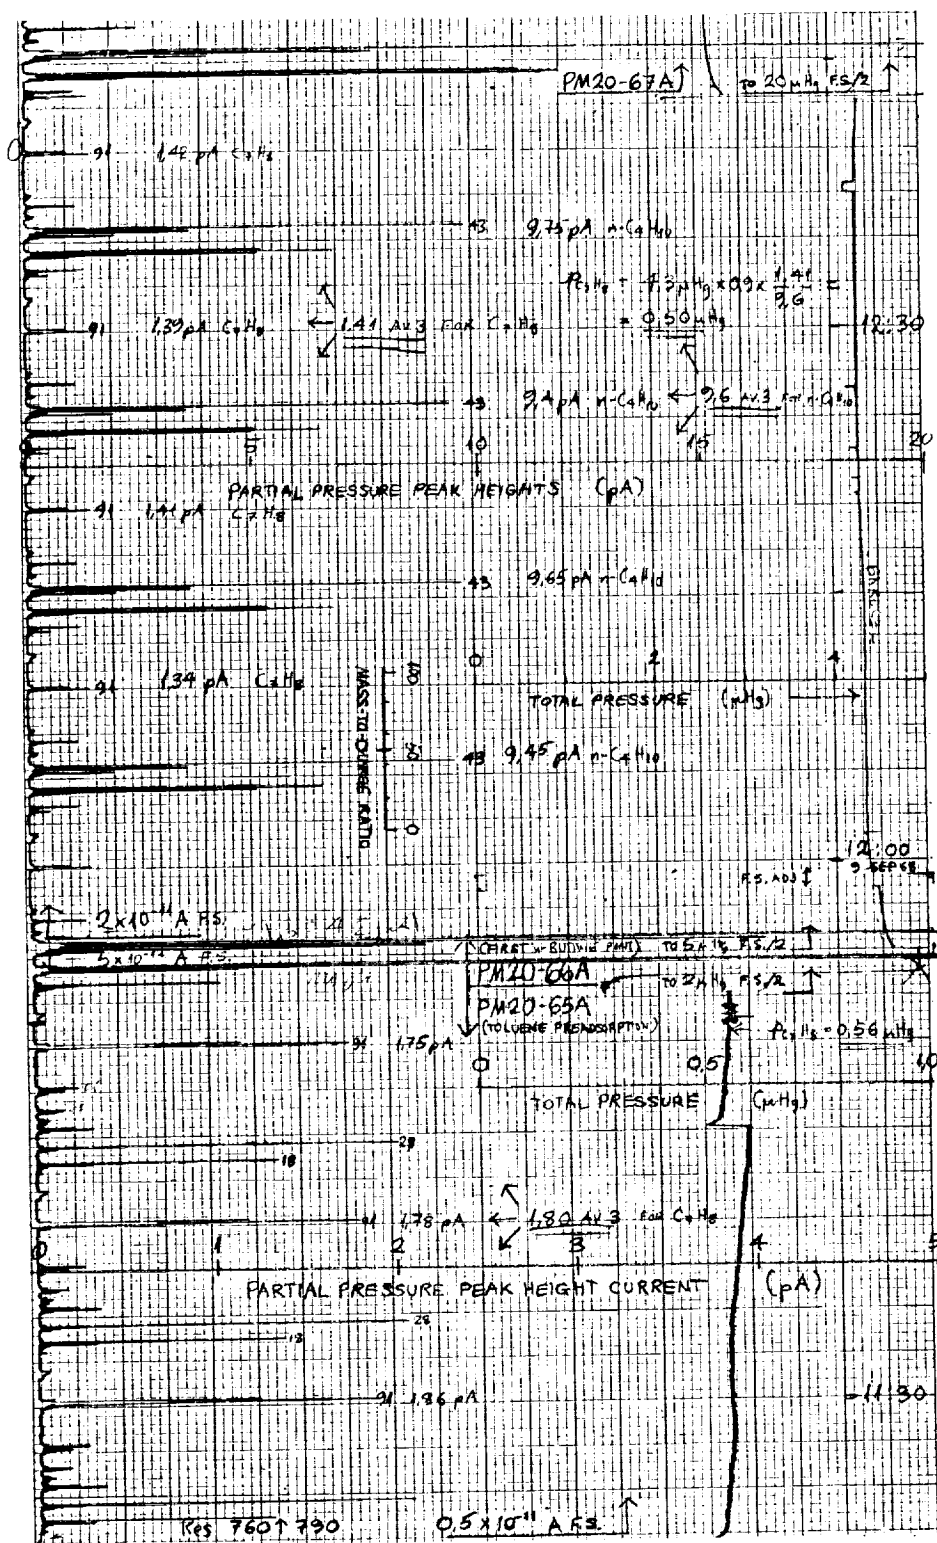 PM20-67A
TO 20 μHg F.S./2
0
91 1,42 pA C7H8
43 9,75 pA n-C4H10
PC7H8 = 4.3 μHg × 0.9 × 1,41/9,6 =
= 0,50 μHg
91 1,39 pA C7H8 ← 1,41 AV.3 FOR C7H8
12:30
43 9,4 pA n-C4H10 ← 9,6 AV.3 FOR n-C4H10
5 10 15 20
PARTIAL PRESSURE PEAK HEIGHTS (pA)
91 1,41 pA C7H8
43 9,65 pA n-C4H10
0 2 4
91 1,34 pA C7H8
TOTAL PRESSURE (μHg)
MASS-TO-CHARGE RATIO
100
50
0
43 9,45 pA n-C4H10
12:00
9 SEP 68
F.S. ADJ
2×10⁻¹¹ A F.S.
(FIRST n-BUTANE POINT) TO 5 μHg F.S./2
5×10⁻¹¹ A F.S.
PM20-66A
TO 2 μHg F.S./2
PM20-65A
(TOLUENE PREADSORPTION)
PC7H8 = 0,56 μHg
91 1,75 pA
0 0,5 1,0
TOTAL PRESSURE (μHg)
28
18
91 1,78 pA ← 1,80 AV.3 FOR C7H8
0 1 2 3 4 5
PARTIAL PRESSURE PEAK HEIGHT CURRENT (pA)
28
18
91 1,86 pA
11:30
Res 760↑790
0.5×10⁻¹¹ A F.S.